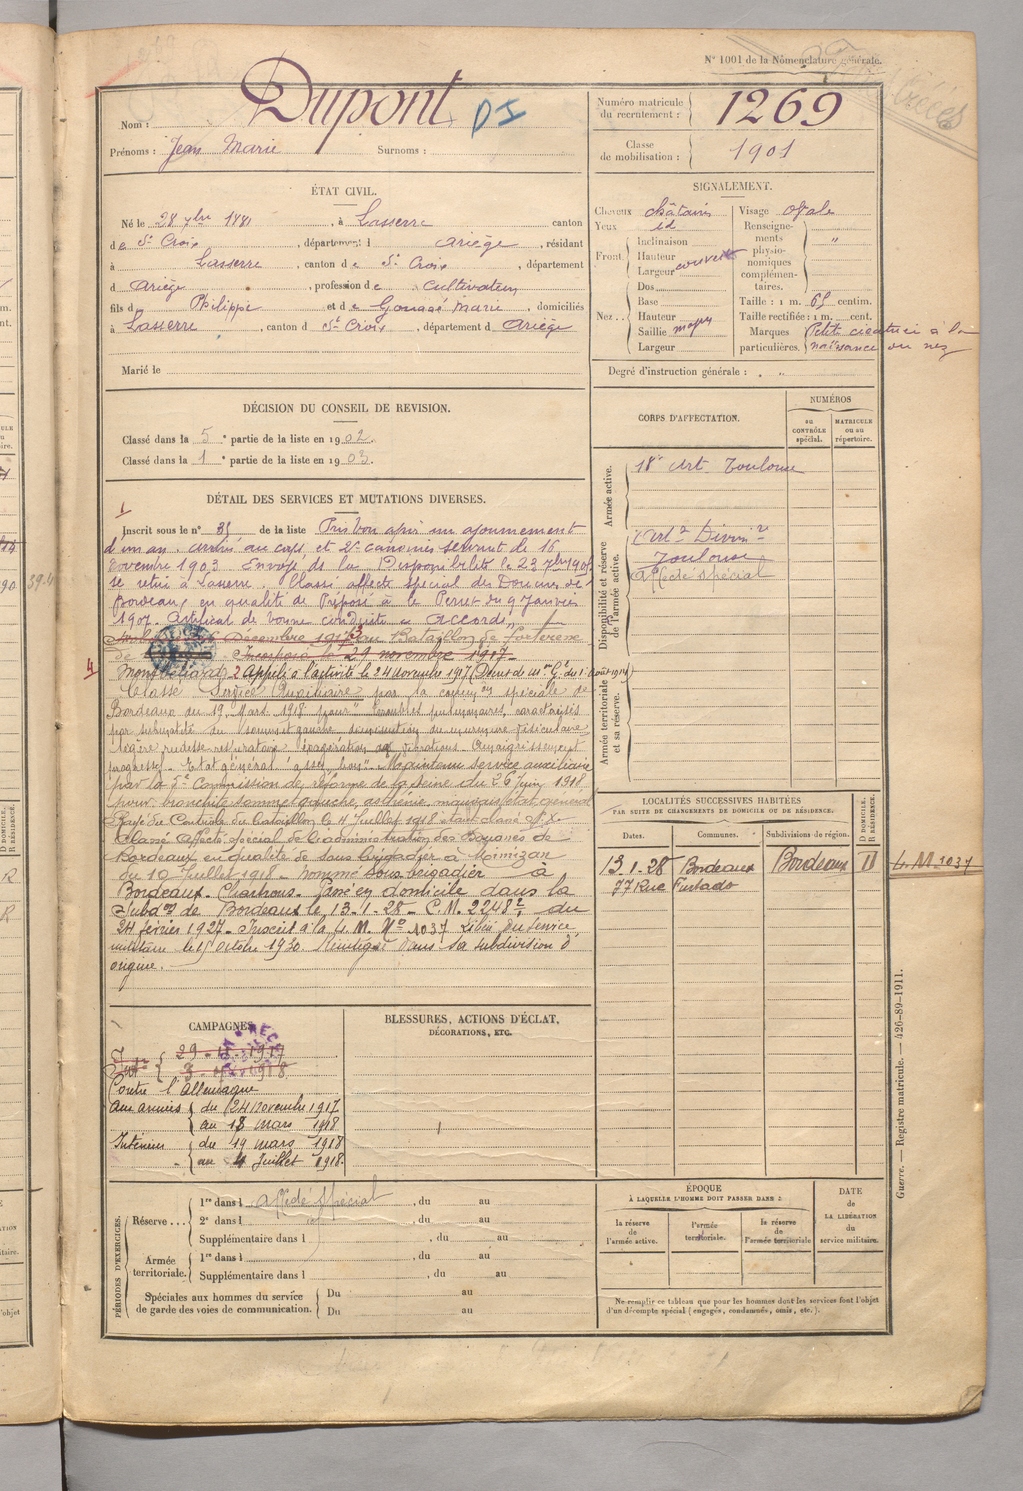 N° 1001 de la Nomenclature générale.
Nom : Dupont DI
Prénoms : Jean Marie Surnoms :
Numéro matricule du recrutement : 1269
Classe de mobilisation : 1901
ÉTAT CIVIL.
Né le 28 7bre 1881, à Lasserre canton
de Ste Croix, département d Ariège, résidant
à Lasserre, canton de Ste Croix, département
d Ariège, profession de Cultivateur
fils d Philippe et de Marie, domiciliés
à Lasserre, canton d Ste Croix, département d Ariège
Marié le
SIGNALEMENT.
Cheveux châtains
Yeux id
Front Inclinaison
Hauteur
Largeur couvert
Nez Dos
Base
Hauteur
Saillie moyen
Largeur
Visage ovale
Renseignements physionomiques complémentaires. "
Taille : 1 m. 65 centim.
Taille rectifiée : 1 m. cent.
Marques particulières. Petite cicatrice à la
naissance du nez
Degré d'instruction générale :
DÉCISION DU CONSEIL DE REVISION.
Classé dans la 5e partie de la liste en 1902.
Classé dans la 1e partie de la liste en 1903.
DÉTAIL DES SERVICES ET MUTATIONS DIVERSES.
1
Inscrit sous le n° 35 de la liste Pris bon après un ajournement
d'un an. Arrivé au corps et 2e canonnier servant le 16
Novembre 1903. Envoyé ds la Disponibilité le 23 7bre 190
se retire à Lasserre. Classé affecté spécial des Douanes de
Bordeaux en qualité de Préposé à le Perret du 9 Janvier
1907. Certificat de bonne conduite "Accordé"
Décembre 1917 au 3 Bataillon de Forteresse
de Incorporé le 29 novembre 1917
4
Montbéliard 2 Appelé à l'activité le 24 novembre 1917 (Décret de Mon Gle du 1 Août 1914)
Classé Service Auxiliaire par la comon spéciale de
Bordeaux du 19 Mars 1918 pour "Troubles pulmonaires, caractérisés
par submatité du sommet gauche diminution du murmure vésiculaire
légère rudesse respiratoire exagération des vibrations. Amaigrissement
progressif. Etat général assez bon". Maintenu service auxiliaire
par la 5e Commission de réforme de la Seine du 26 Juin 1918
pour bronchite sommet gauche, asthénie, mauvais état général
Rayé du Contrôle du bataillon le 4 Juillet 1918 étant classé
Classé Affecté spécial de l'administration des Douanes de
Bordeaux en qualité de sous brigadier à Mimizan
du 10 Juillet 1918. Nommé sous brigadier à
Bordeaux-Chartrons. Passé en domicile dans la
Subdon de Bordeaux le 13-1-28. C.M. 2248 du
24 février 1927. Inscrit à la L.M. No 1037 Libéré du service
militaire le 15 octobre 1930. Réintégré dans sa subdivision d'
origine.
CORPS D'AFFECTATION.
NUMÉROS
au CONTRÔLE spécial.
MATRICULE ou au répertoire.
Armée active.
18e Art Toulouse
Disponibilité et réserve de l'armée active.
Toulouse
affecté spécial
Armée territoriale et sa réserve.
LOCALITÉS SUCCESSIVES HABITÉES
PAR SUITE DE CHANGEMENTS DE DOMICILE OU DE RÉSIDENCE.
Dates. Communes. Subdivisions de région. D DOMICILE. R RÉSIDENCE.
13.1-28 Bordeaux Bordeaux D L.M. 1037
77 Rue Furtado
CAMPAGNES.
29-11-1917
1918
Contre l'Allemagne
Aux armées du 24 Novembre 1917
au 18 Mars 1918
Intérieur du 19 mars 1918
au 4 Juillet 1918.
BLESSURES, ACTIONS D'ÉCLAT,
DÉCORATIONS, ETC.
PÉRIODES D'EXERCICES.
Réserve... 1re dans l affecté spécial, du au
2e dans l, du au
Supplémentaire dans l, du au
Armée territoriale. 1re dans l, du au
Supplémentaire dans l, du au
Spéciales aux hommes du service Du au
de garde des voies de communication. Du au
ÉPOQUE
À LAQUELLE L'HOMME DOIT PASSER DANS :
la réserve de l'armée active.
l'armée territoriale.
la réserve de l'armée territoriale
DATE de LA LIBÉRATION du service militaire.
Ne remplir ce tableau que pour les hommes dont les services font l'objet
d'un décompte spécial (engagés, condamnés, omis, etc.).
Guerre. — Registre matricule. — 426-89-1911.